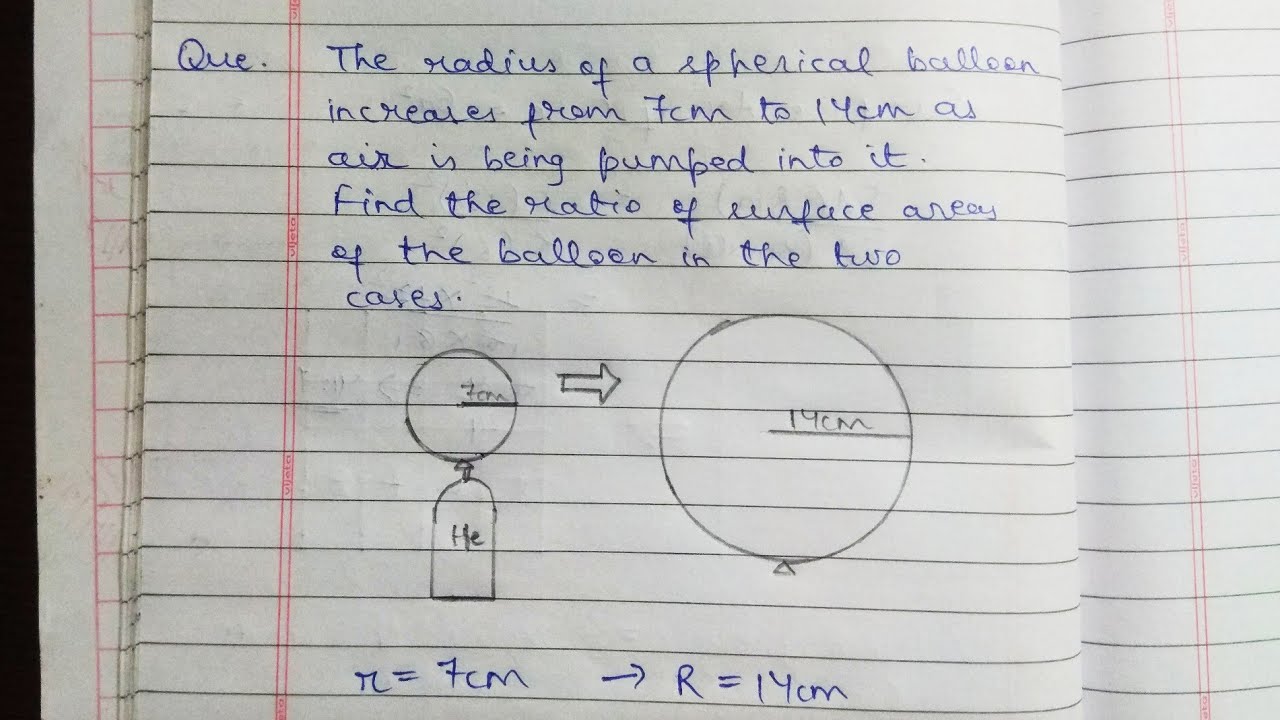 Que. The radius of a spherical balloon
increases from 7cm to 14cm as
air is being pumped into it.
Find the ratio of surface areas
of the balloon in the two
cases.
7cm
14cm
He
r = 7cm → R = 14cm
vijeta
vijeta
vijeta
vijeta
vijeta
vijeta
vijeta